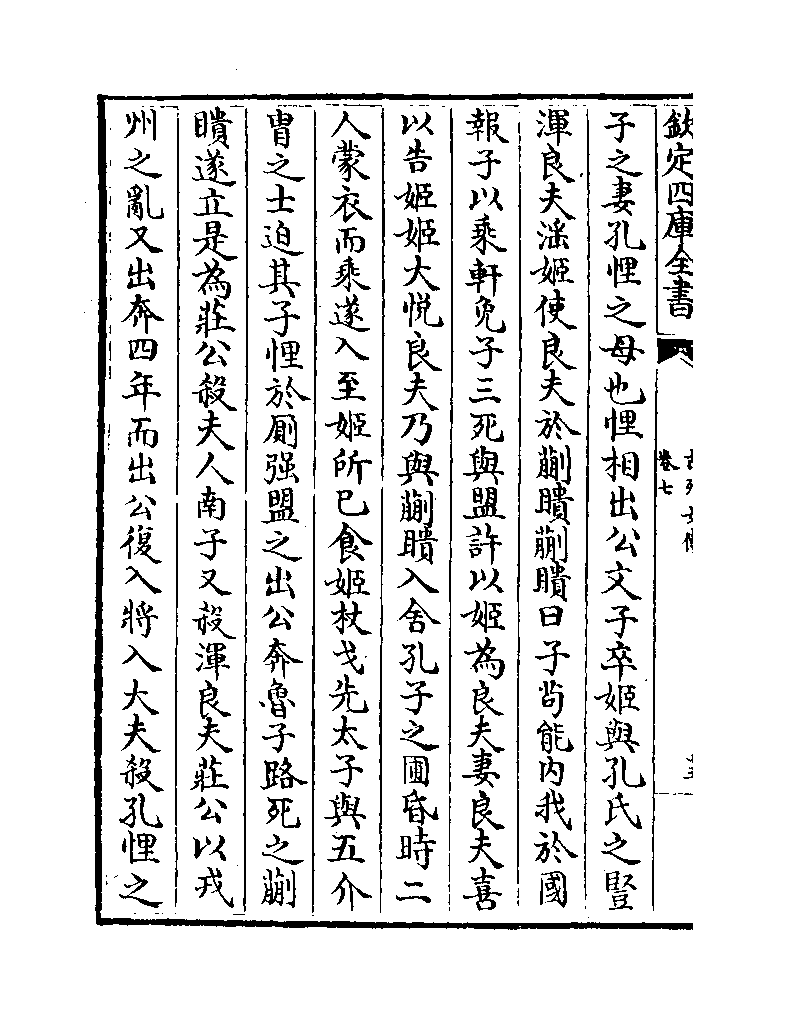 欽定四庫全書
卷七
子之妻孔悝之母也悝相出公文子卒姬與孔氏之豎
渾良夫淫姬使良夫於蒯聵蒯聵曰子茍能内我於國
報子以乘軒免子三死與盟許以姬為良夫妻良夫喜
以告姬姬大悅良夫乃與蒯聵入舍孔子之圃昏時二
人蒙衣而乘遂入至姬所已食姬杖戈先太子與五介
胄之士迫其子悝於厠强盟之出公奔魯子路死之蒯
聵遂立是為莊公殺夫人南子又殺渾良夫莊公以戎
州之亂又出奔四年而出公復入將入大夫殺孔悝之